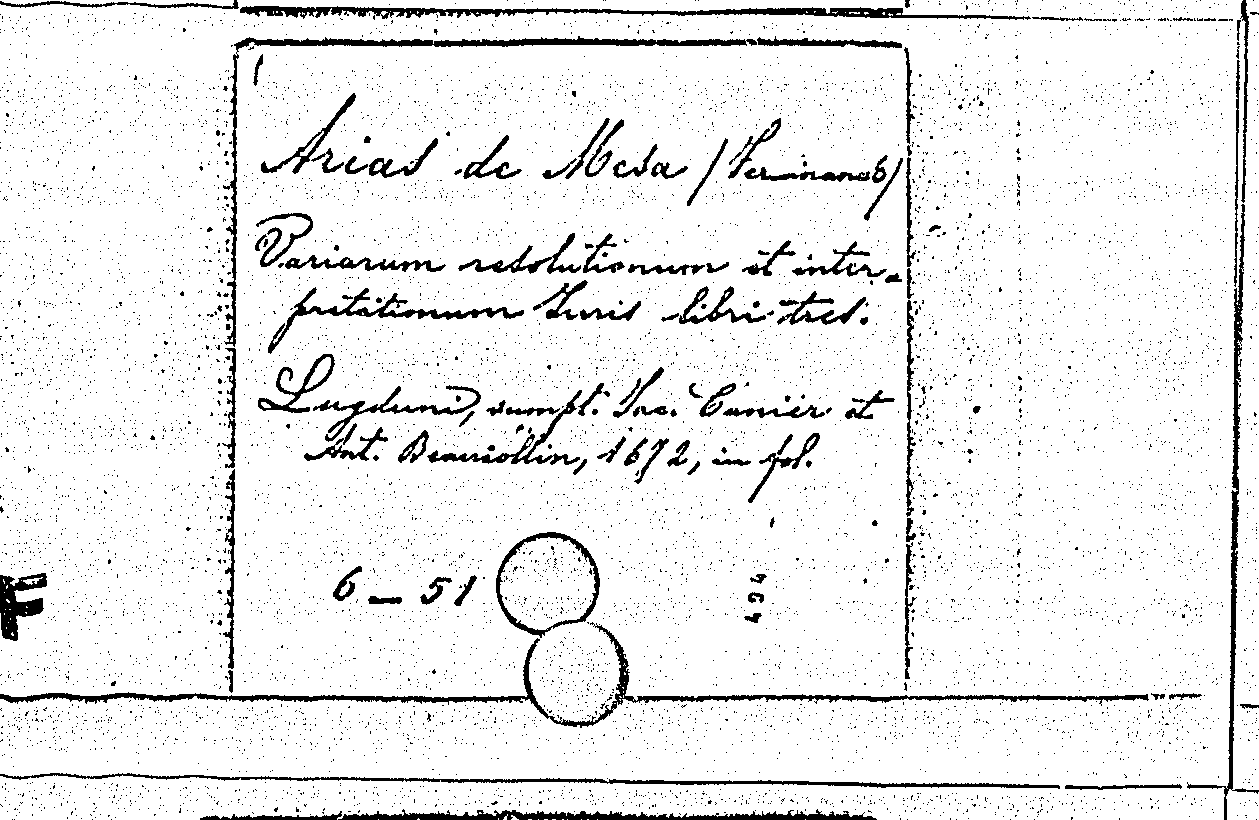 Arias de Mesa (Ferdinandus)
Variarum resolutionum et inter-
pretationum Juris libri tres.
Lugduni, sumpt. Jac. Canier et
Ant. Beaujollin, 1672, in fol.
6 - 51
494
F